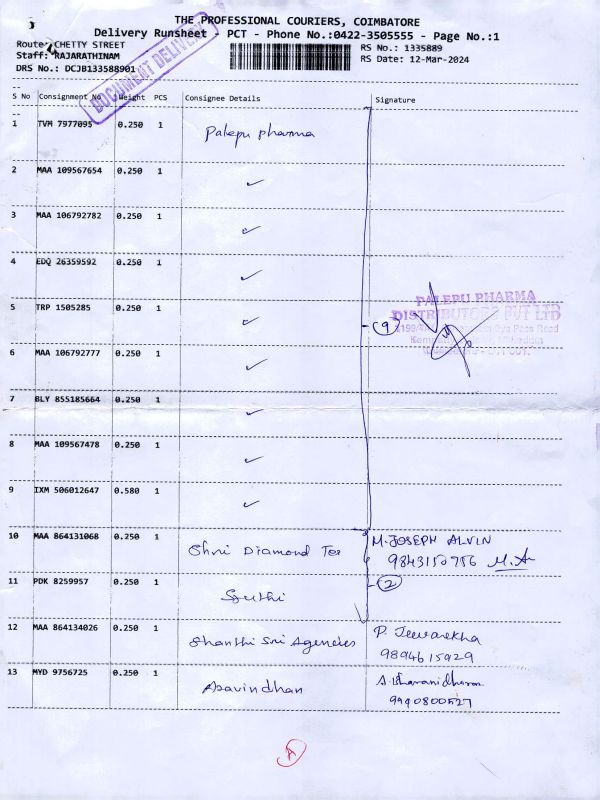 THE PROFESSIONAL COURIERS, COIMBATORE
Delivery Runsheet - PCT - Phone No.:0422-3505555 - Page No.:1
Route: CHETTY STREET
Staff: RAJARATHINAM
DRS No.: DCJB133588901
RS No.: 1335889
RS Date: 12-Mar-2024
DOCUMENT DELIVERY
S No Consignment No Weight PCS Consignee Details Signature
1 TVM 7977095 0.250 1 Palepu pharma
2 MAA 109567654 0.250 1 ✓
3 MAA 106792782 0.250 1 ✓
4 EDQ 26359592 0.250 1 ✓
5 TRP 1505285 0.250 1 ✓
9
PALEPU PHARMA
DISTRIBUTORS PVT LTD
Pass Road
6 MAA 106792777 0.250 1 ✓
7 BLY 855185664 0.250 1 ✓
8 MAA 109567478 0.250 1 ✓
9 IXM 506012647 0.580 1 ✓
10 MAA 864131068 0.250 1 Shri Diamond Tex M. JOSEPH ALVIN
9843150756 M.A
11 PDK 8259957 0.250 1 Sruthi 2
12 MAA 864134026 0.250 1 Shanthi Sri Agencies P. Jeevarekha
9894615929
13 MYD 9756725 0.250 1 Aravindhan S. Bharanidharan
9990800527
A